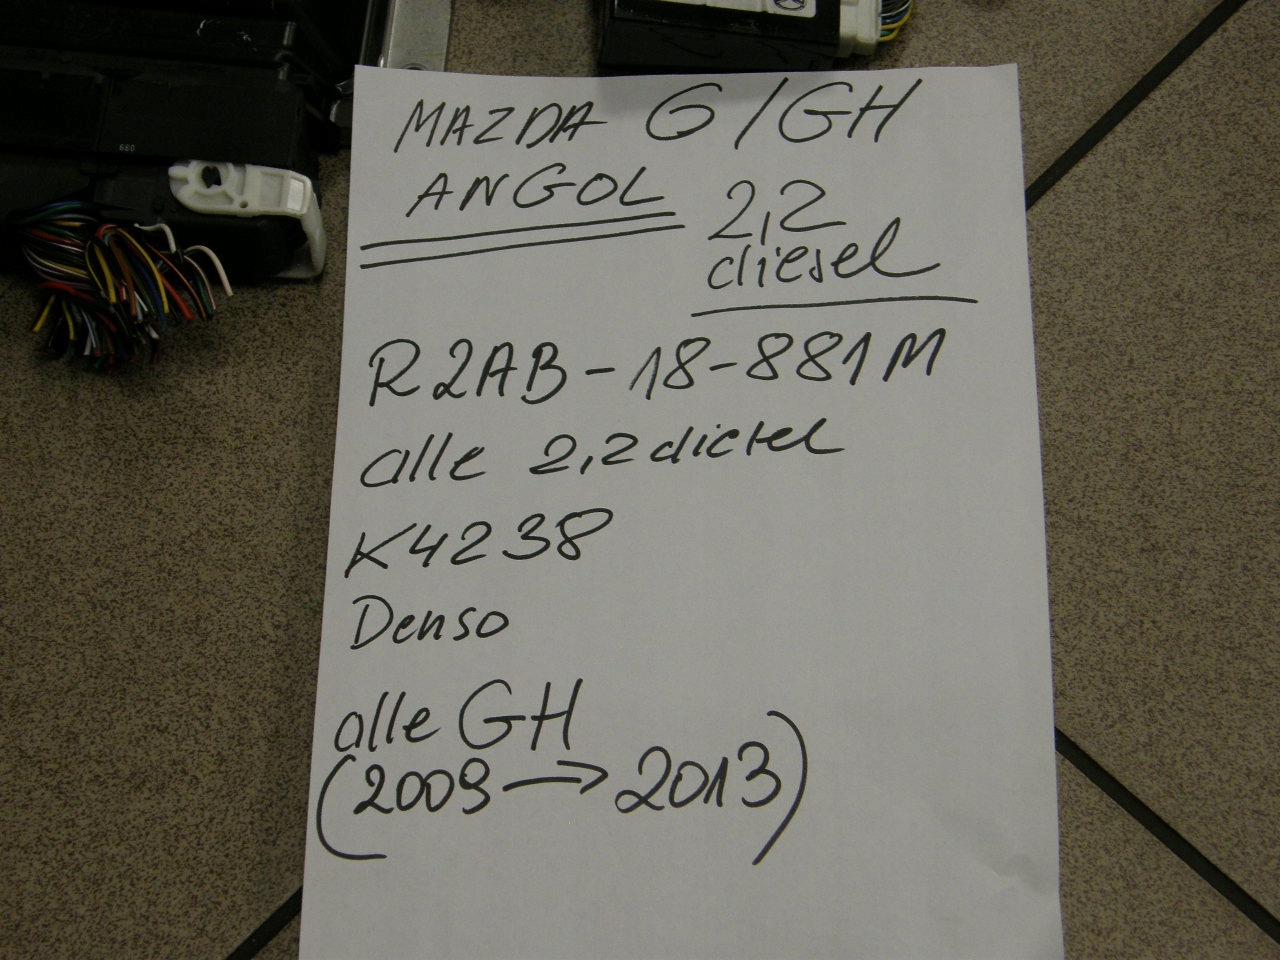 MAZDA 6/GH
ANGOL
2,2
diesel
R2AB-18-881M
alle 2,2 diesel
K4238
Denso
alle GH
(2009 → 2013)
660